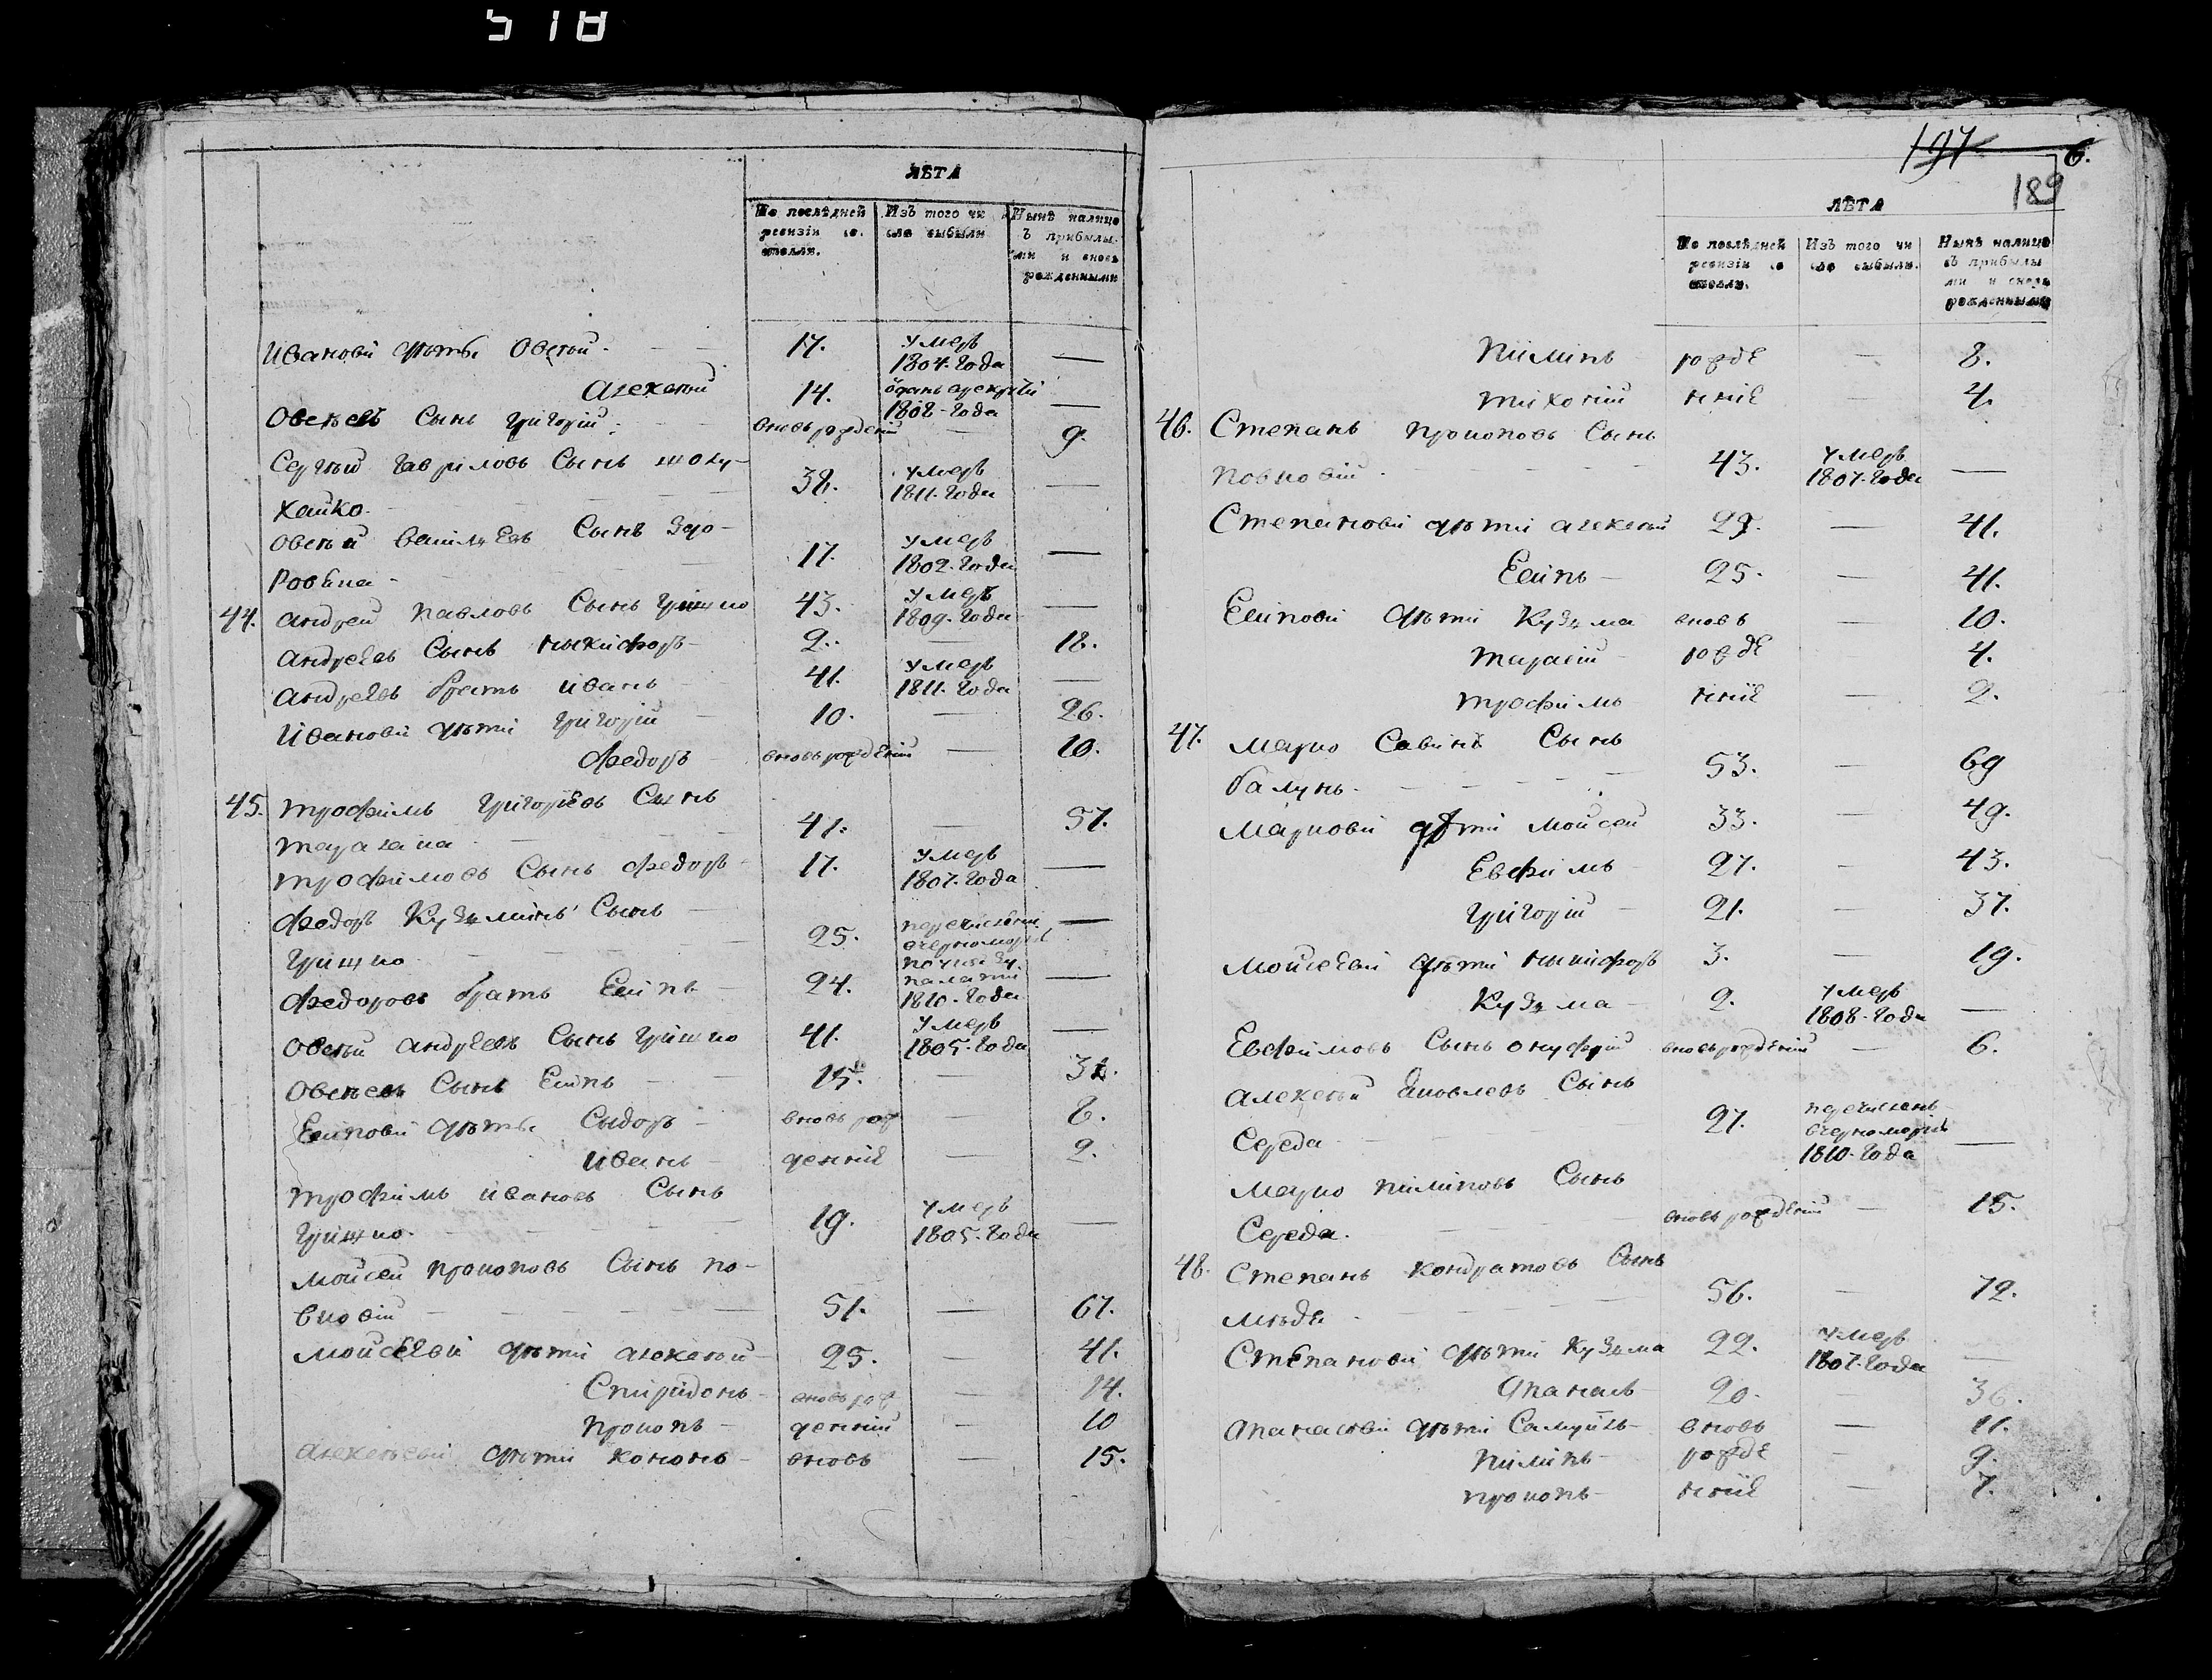 518
ЛѢТА
По послѣдней ревизіи состояли.
Изъ того числа выбыли
Нынѣ налицо съ прибылыми и вновь рожденными
Ивановы дѣти Овсѣй 17. Умеръ 1804. Года —
Алексѣй 14. 1808 Года —
Овсѣевъ Сынъ Григорій вновь рожденій — 9.
Сергѣй Гавриловъ Сынъ шолу-
хайко 38. Умеръ 1811. Года —
Овсѣй Сынъ Здо-
ровѣца 17. Умеръ 1802. Года —
44. Андрей Павловъ Сынъ Грицко 43. Умеръ 1809. Года —
Андрѣевъ Сынъ Никифоръ 2. 18.
Андрѣевъ братъ Иванъ 41. Умеръ 1811. Года —
Ивановы дѣти Григорій 10. — 26.
Федоръ вновь рожденій — 10.
45. Трофимъ Григоріевъ Сынъ
41. — 57.
Трофимовъ Сынъ Федоръ 17. Умеръ 1807. Года —
Федоръ Кузьминъ Сынъ
Грицко 25. перечислены в черноморію —
Федоровъ братъ Есипъ 24. 1810. Года —
Овсѣй Андрѣевъ Сынъ Грицко 41. Умеръ 1805. Года —
Овсѣевъ Сынъ Есипъ 15. — 31.
Есиповы дѣти Сыдоръ вновь рож — 8.
Иванъ денніе — 2.
Трофимъ Ивановъ Сынъ
Грицко 19. Умеръ 1805. Года —
Мойсей Прокоповъ Сынъ по-
вковій 51. — 67.
Мойсѣевы дѣти Алексѣй 25. — 41.
Спиридонъ вновь рож — 14.
Прокопъ денній — 10
Алексѣевы дѣти Кононъ вновь — 15.
197 6.
189
ЛѢТА
По послѣдней ревизіи состояли.
Изъ того числа выбыли.
Нынѣ налицо съ прибылыми и вновь рожденными
Пилипъ рожде — 8.
Тихоній нніе — 4.
46. Степанъ Прокоповъ Сынъ
Повковій 43. Умеръ 1807. Года —
Степановы дѣти Алексѣй 25. — 41.
Есипъ 25. — 41.
Есиповы дѣти Кузьма вновь — 10.
Тарасій рожде 4.
Трофимъ нніе — 2.
47. Марко Савинъ Сынъ
балунъ 53. — 69
Марковы дѣти Мойсей 33. — 49.
Евфимъ 27. — 43.
Григорій 21. — 37.
Мойсѣевы дѣти Никифоръ 3. — 19.
Кузьма 2. Умеръ 1808. Года —
Евфимовъ Сынъ Онуфрій вновь рожденій — 6.
Алексѣй Яковлевъ Сынъ
Середа 27. перечисленъ в черноморію 1810. Года —
Марко Пилиповъ Сынъ
Середа. вновь рожденій — 15.
48. Степанъ Кондратовъ Сынъ
56. — 72.
Степановы дѣти Кузьма 22. Умеръ 1807. Года —
Апанасъ 20. — 36.
Апанасовы дѣти Самуилъ вновь — 11.
Пилипъ рожде — 9.
Прокопъ нніе — 7.